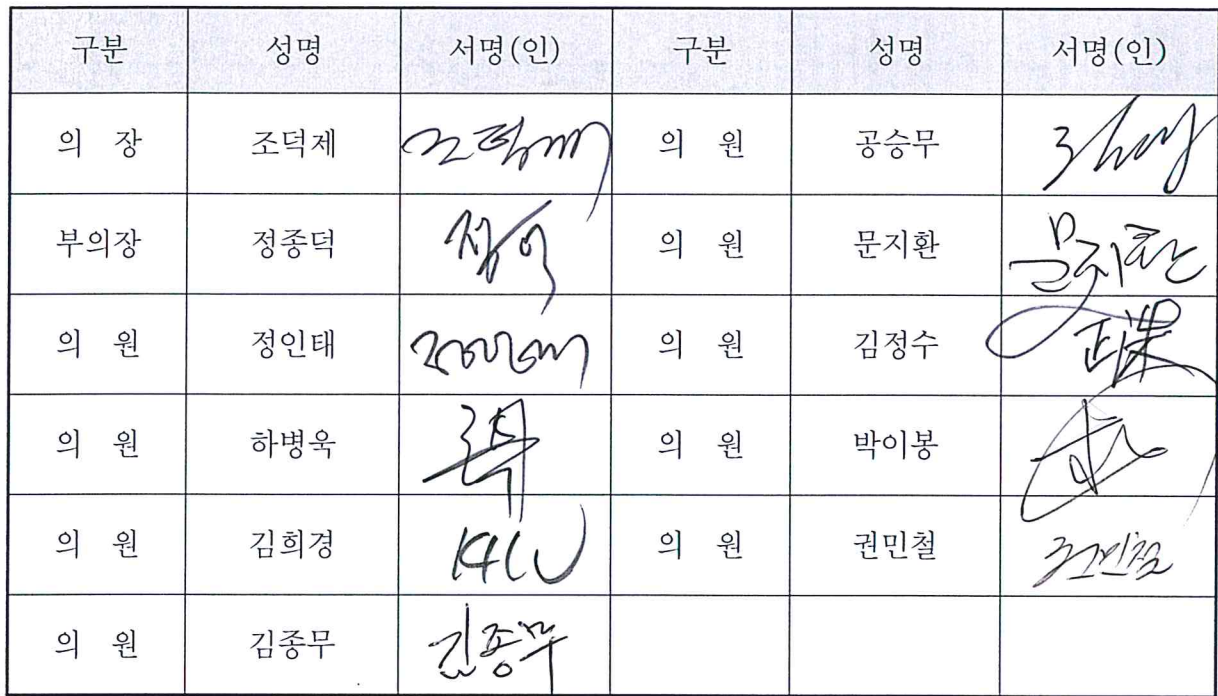 구분 성명 서명(인) 구분 성명 서명(인)
의 장 조덕제 조덕제 의 원 공승무
부의장 정종덕 의 원 문지환 문지환
의 원 정인태 의 원 김정수
의 원 하병욱 의 원 박이봉
의 원 김희경 의 원 권민철 권민철
의 원 김종무 김종무